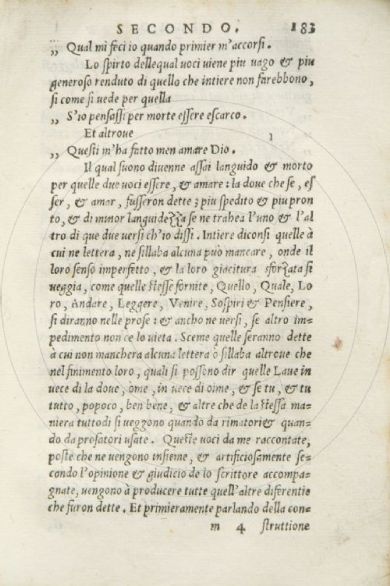 SECONDO. 183
„ Qual mi feci io quando primier m'accorsi.
Lo spirto dellequal uoci uiene piu uago & piu
generoso renduto di quello che intiere non farebbono,
si come si uede per quella
„ S'io pensassi per morte essere escarco.
Et altroue
„ Questi m'ha fatto men amare Dio.
Il qual suono diuenne assai languido & morto
per quelle due uoci essere, & amare: la doue che se, es
ser, & amar, fusseron dette; piu spedito & piu pron
to, & di minor languidezza se ne trahea l'uno & l'al
tro di que due uersi ch'io dissi. Intiere diconsi quelle à
cui ne lettera, ne sillaba alcuna può mancare, onde il
loro senso imperfetto, & la loro giacitura sforzata si
ueggia, come quelle stesse fornite, Quello, Quale, Lo
ro, Andare, Leggere, Venire, Sospiri & Pensiere,
si diranno nelle prose: & ancho ne uersi, se altro im=
pedimento non ce lo uieta. Sceme quelle seranno dette
à cui non manchera alcuna lettera ò sillaba altroue che
nel finimento loro, quali si possono dir quelle Laue in
uece di la doue, ome, in uece di oime, & se tu, & tu
tutto, popoco, ben bene, & altre che de la stessa ma=
niera tuttodi si ueggono quando da rimatori & quan=
do da prosatori usate. Queste uoci da me raccontate,
poste che ne uengono insieme, & artificiosamente se=
condo l'opinione & giudicio de lo scrittore accompa=
gnate, uengono à producere tutte quell'altre differentie
che furon dette. Et primieramente parlando della con=
m 4 struttione